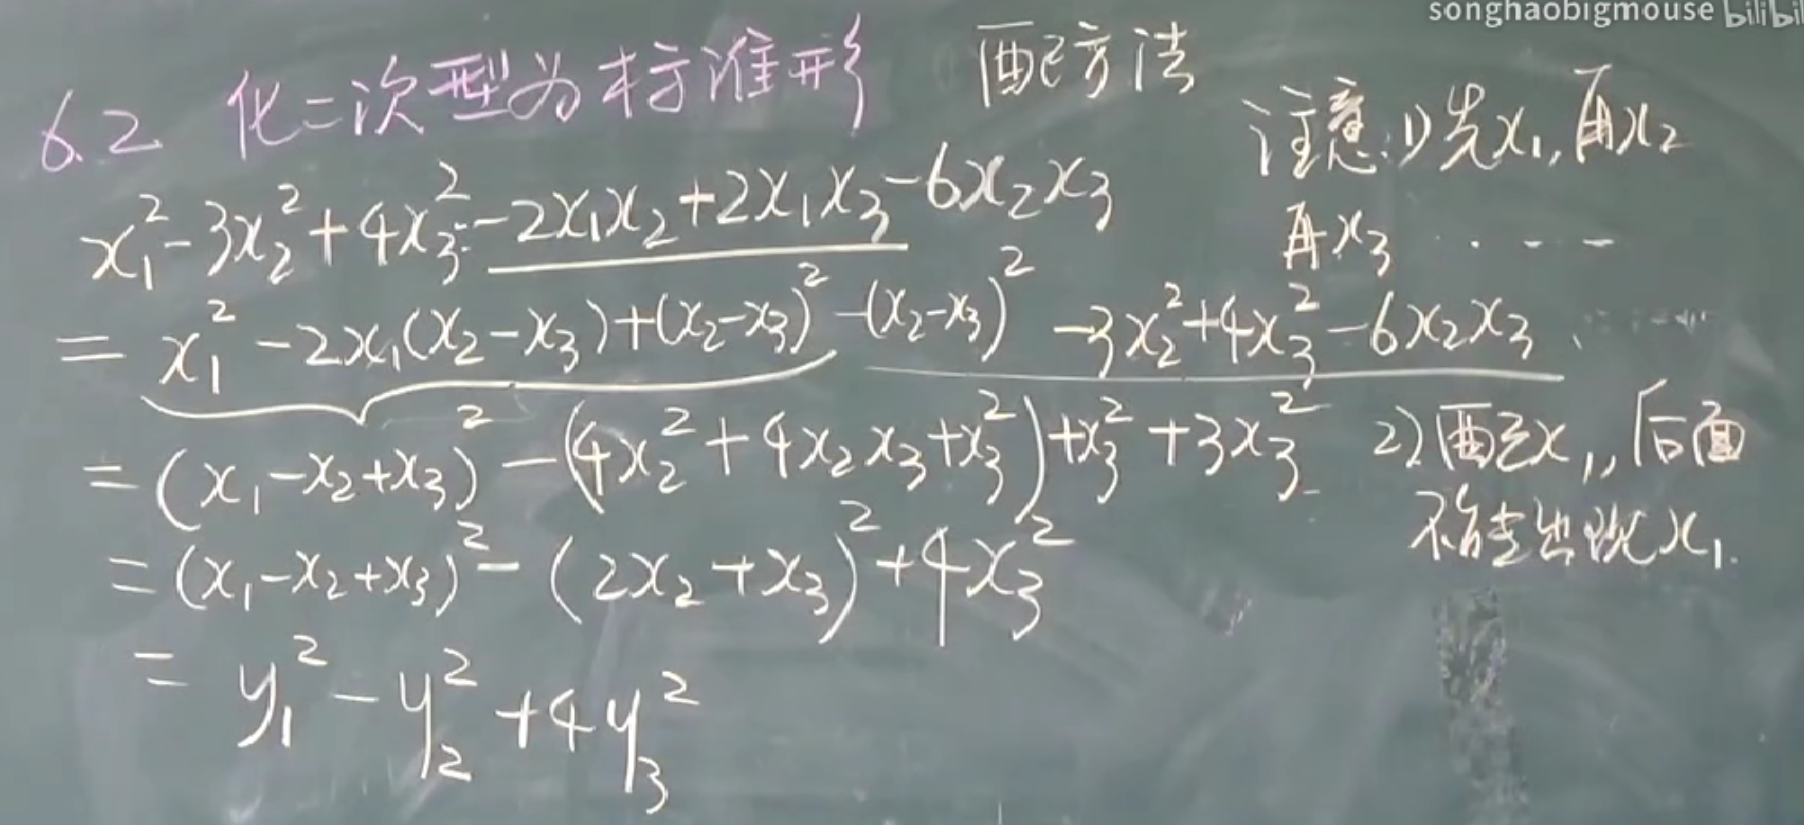 songhaobigmouse bilibili
6.2 化二次型为标准形 配方法
注意:1)先x₁,再x₂
再x₃ ······
x₁²-3x₂²+4x₃²-2x₁x₂+2x₁x₃-6x₂x₃
=x₁²-2x₁(x₂-x₃)+(x₂-x₃)²-(x₂-x₃)² -3x₂²+4x₃²-6x₂x₃
=(x₁-x₂+x₃)²-(4x₂²+4x₂x₃+x₃²)+x₃²+3x₃²
2)配完x₁,后面
不能再出现x₁.
=(x₁-x₂+x₃)²-(2x₂+x₃)²+4x₃²
=y₁²-y₂²+4y₃²